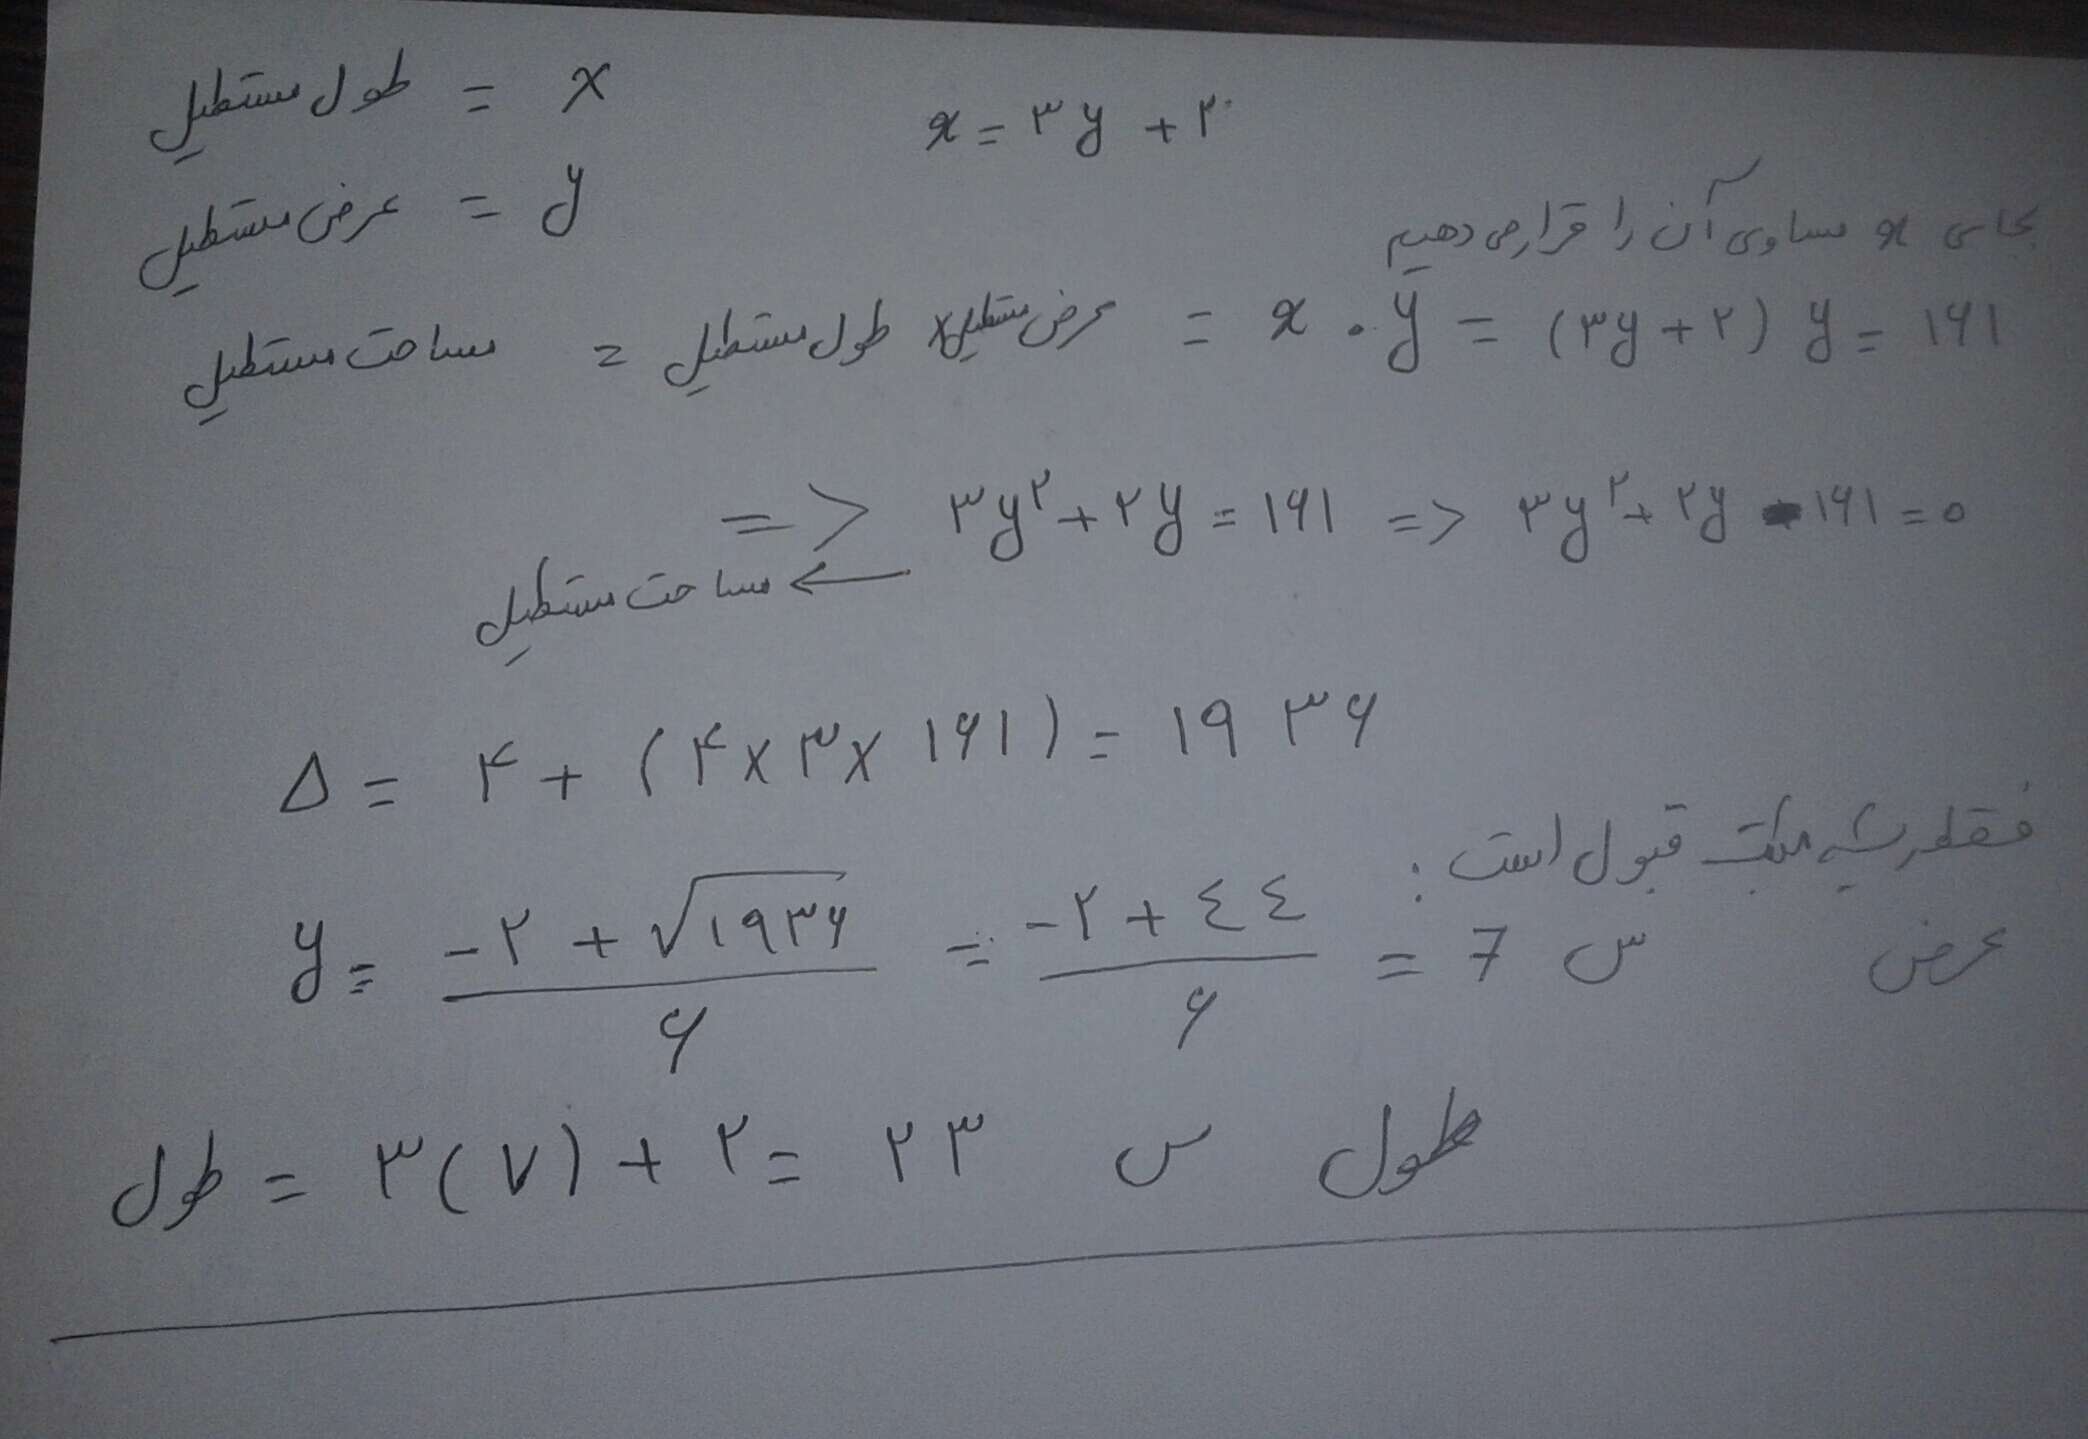 طول مستطیل = x
x = ۳y + ۲
عرض مستطیل = y
بجای x مساوی آن را قرار می دهیم
مساحت مستطیل = طول مستطیل x عرض مستطیل = x . y = (۳y + ۲) y = ۱۶۱
=> ۳y^۲ + ۲y = ۱۶۱ => ۳y^۲ + ۲y - ۱۶۱ = ۰
مساحت مستطیل ←
Δ = ۴ + (۴ x ۳ x ۱۶۱) = ۱۹۳۶
فقط ریشه مثبت قبول است :
y = (-۲ + √۱۹۳۶)/۶ = (-۲ + ٤٤)/۶ = 7 س عرض
طول = ۳(۷) + ۲ = ۲۳ س طول